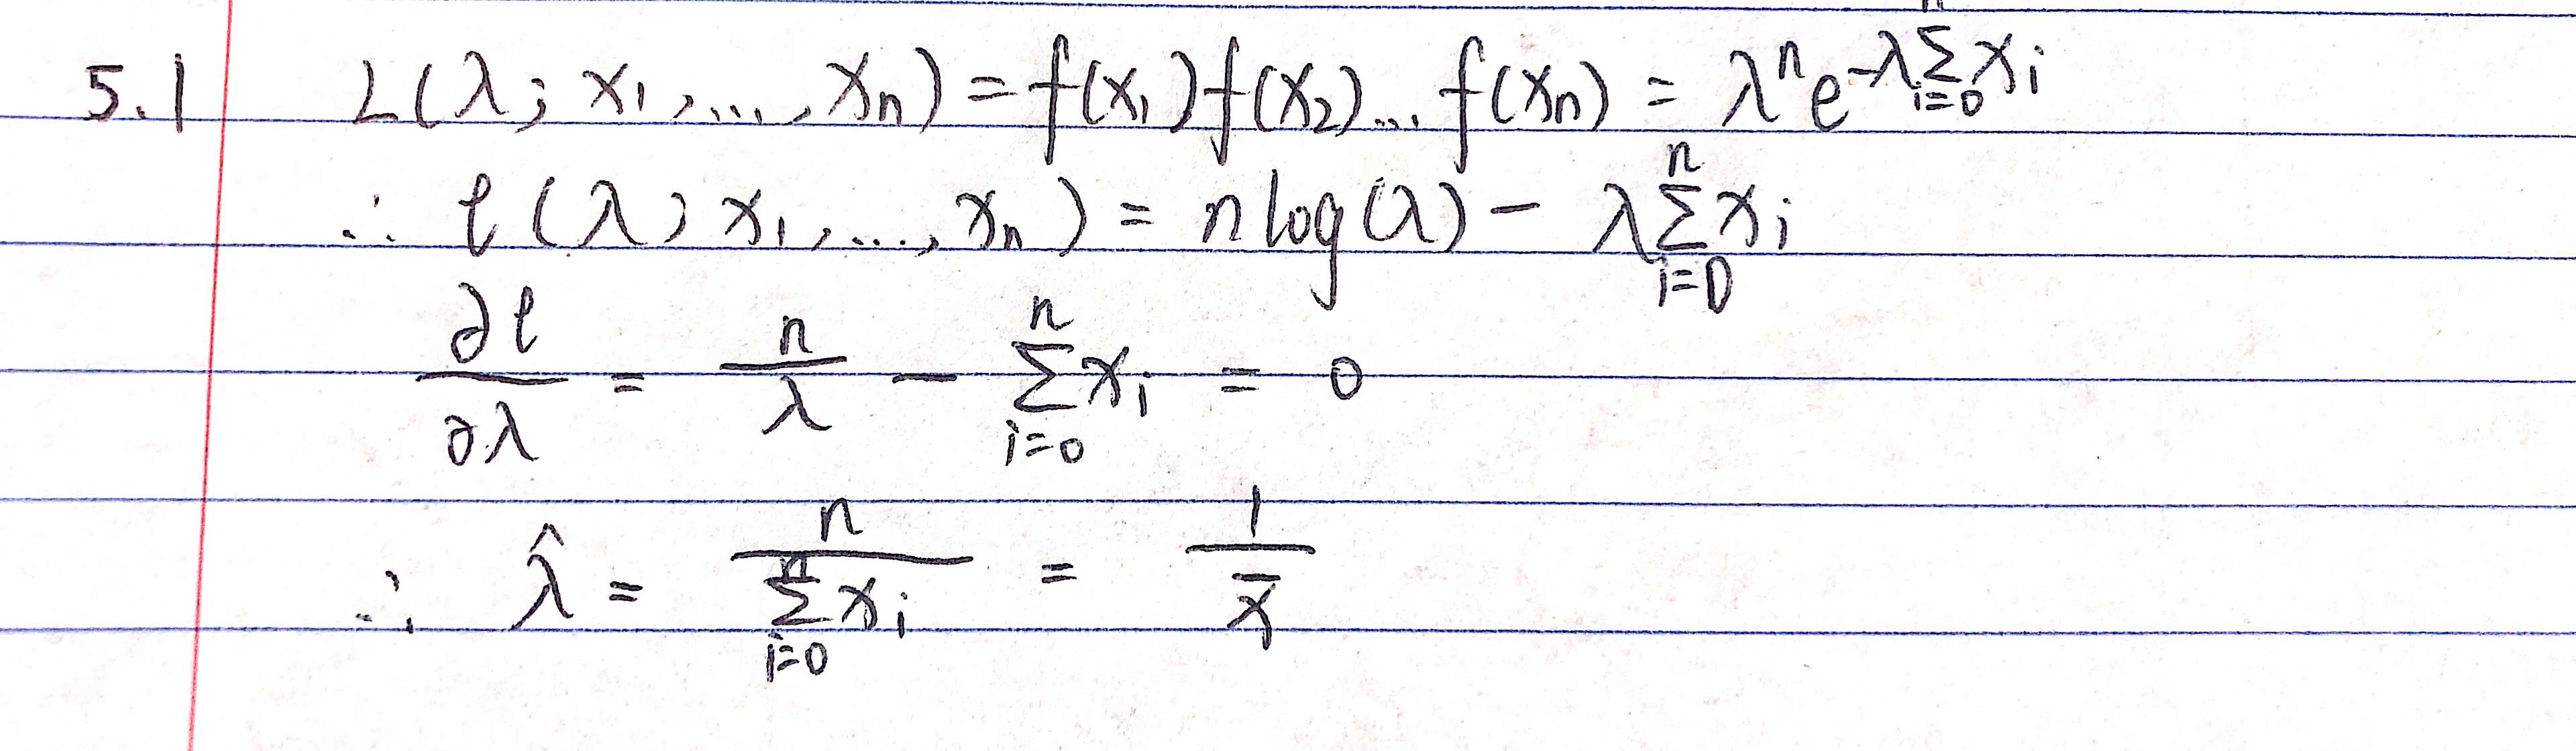 5.1 L(λ; x₁,...,xₙ) = f(x₁)f(x₂)...f(xₙ) = λⁿe^{-λ∑_{i=0}^{n} xᵢ}
∴ ℓ(λ; x₁,...,xₙ) = n log(λ) - λ∑_{i=0}^{n} xᵢ
∂ℓ/∂λ = n/λ - ∑_{i=0}^{n} xᵢ = 0
∴ λ̂ = n/∑_{i=0}^{n} xᵢ = 1/x̄